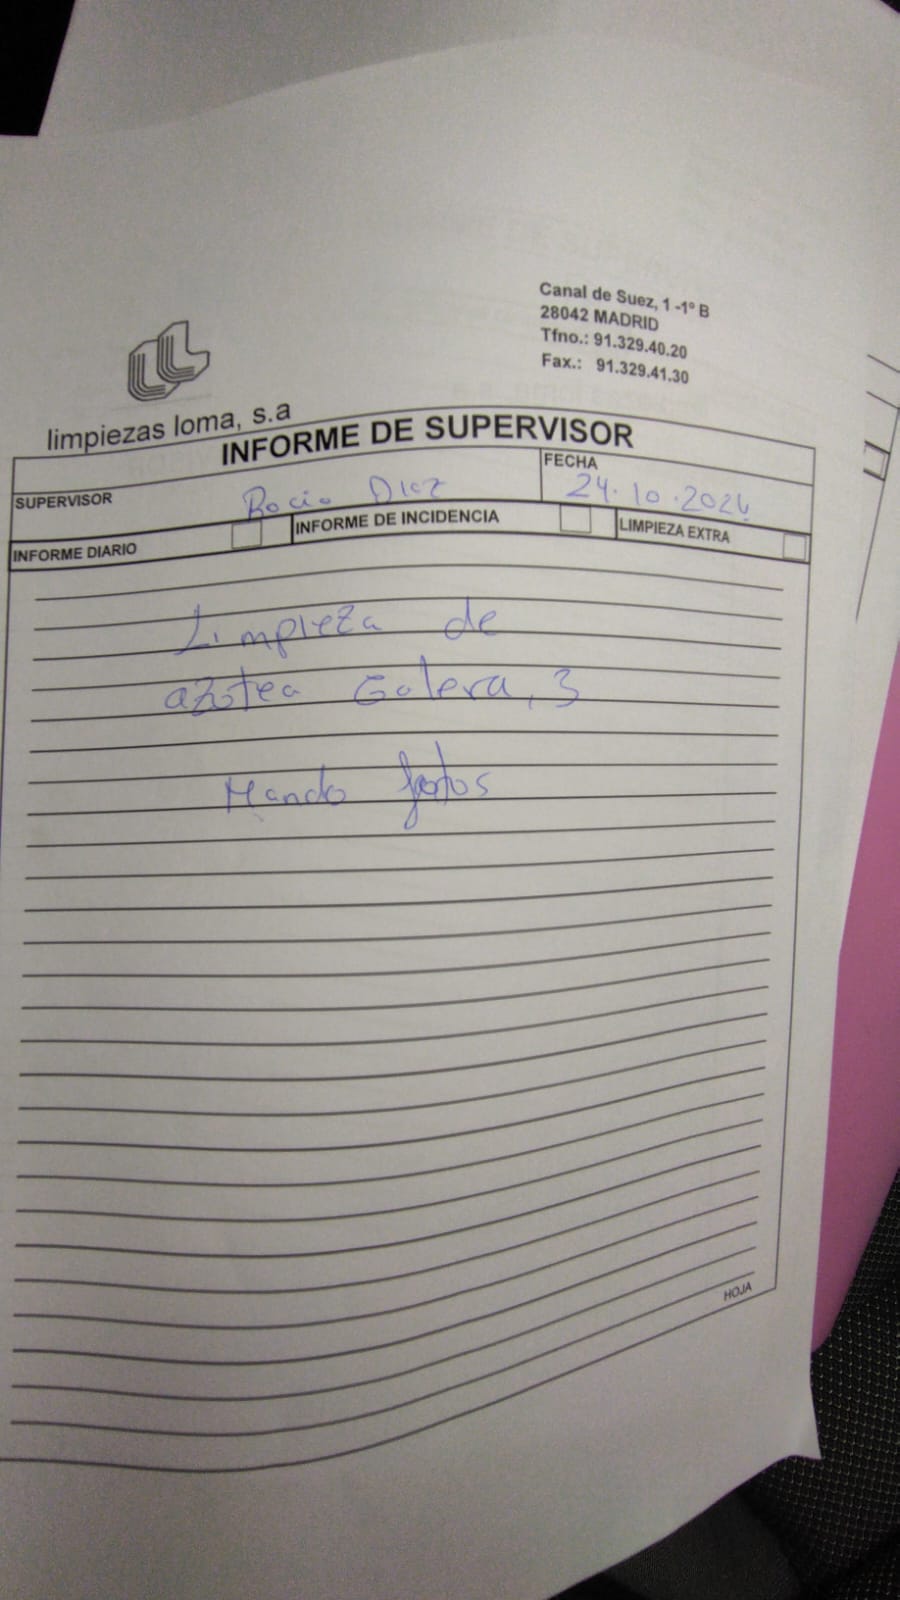 Canal de Suez, 1 -1º B
28042 MADRID
Tfno.: 91.329.40.20
Fax.: 91.329.41.30
limpiezas loma, s.a
INFORME DE SUPERVISOR
SUPERVISOR Rocio Diez
FECHA 24.10.2024
INFORME DIARIO INFORME DE INCIDENCIA LIMPIEZA EXTRA
Limpieza de
azotea Galera, 3
Mando fotos
HOJA